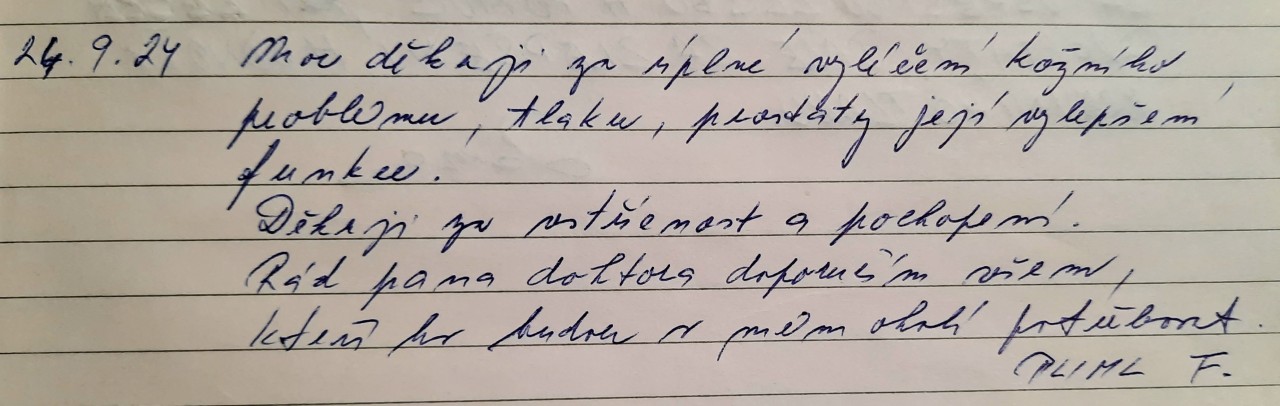 24. 9. 24 Moc děkuji za úplné vyléčení kožního
problému, tlaku, prostaty její vylepšení
funkce.
Děkuji za vstřícnost a pochopení.
Rád pana doktora doporučím všem,
kteří ho budou v mém okolí potřebovat.
PLIML F.